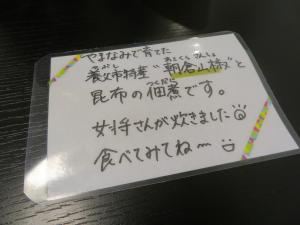 やまなみで育てた
養父市特産"朝倉山椒"と
昆布の佃煮です。
女将さんが炊きました
食べてみてね〜